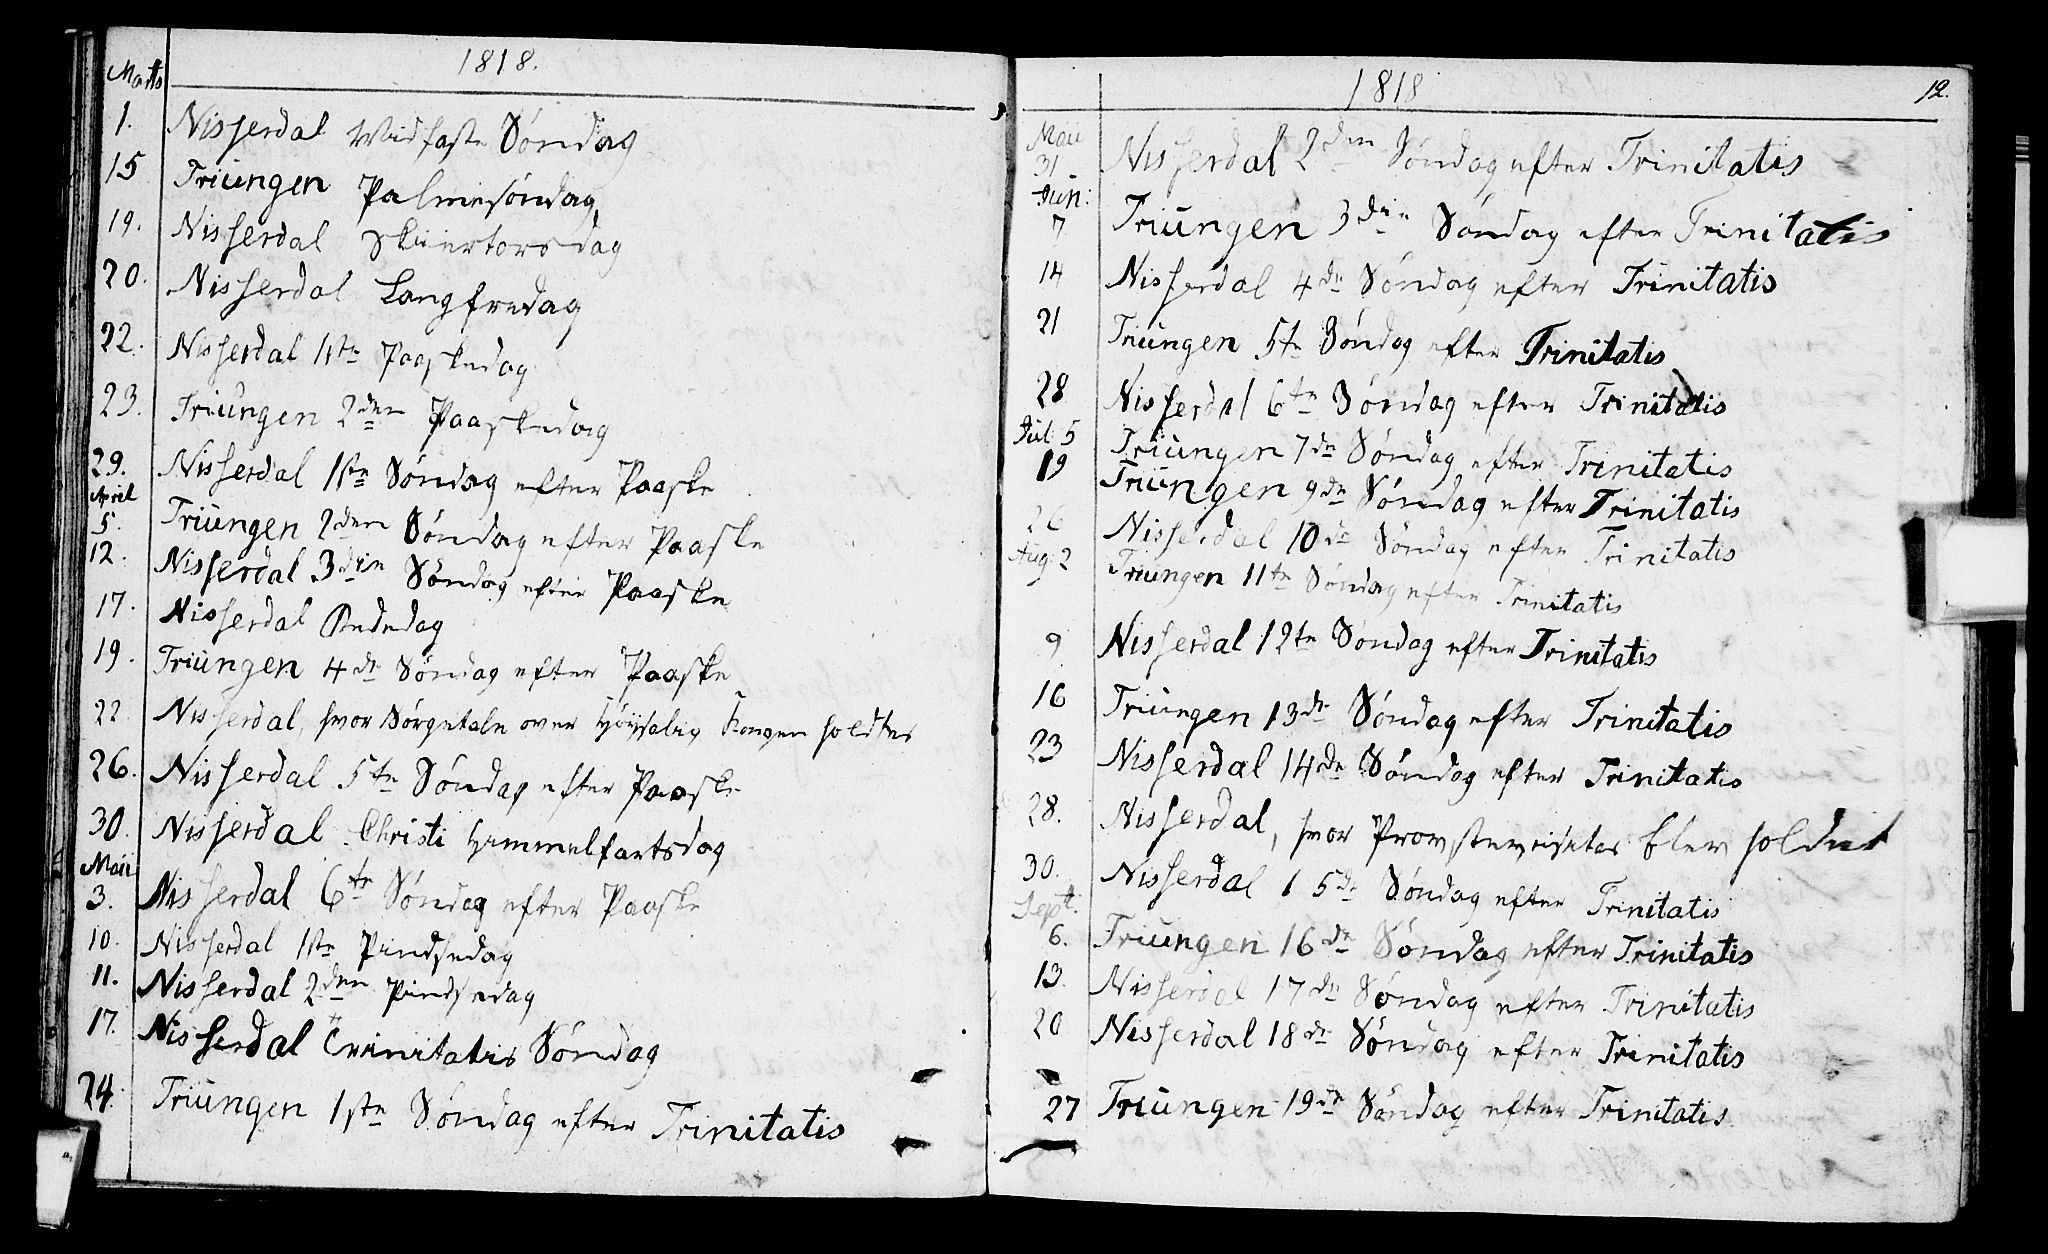 Marts
1818.
1. Nisserdal Midfaste Søndag
15 Triungen Palmesøndag
19. Nisserdal Skiertorsdag
20. Nisserdal Langfredag
22. Nisserdal 1ste Paaskedag
23. Triungen 2den Paaskedag
29. Nisserdal 1ste Søndag efter Paaske
April
5. Triungen 2den Søndag efter Paaske
12. Nisserdal 3die Søndag efter Paaske
17. Nisserdal Bededag
19. Triungen 4de Søndag efter Paaske
22 Nisserdal, hvor Sørgetale over Høisalig Kongen holdtes
26. Nisserdal 5te Søndag efter Paaske
30. Nisserdal Christi Himmelfartsdag
Maii
3. Nisserdal 6te Søndag efter Paaske
10. Nisserdal 1ste Pindsedag
11. Nisserdal 2den Pindsedag
17. Nisserdal Trinitatis Søndag
24. Triungen 1ste Søndag efter Trinitatis
1818
12.
Maii
31 Nisserdal 2den Søndag efter Trinitatis
Jun:
7 Triungen 3die Søndag efter Trinitatis
14 Nisserdal 4de Søndag efter Trinitatis
21 Triungen 5te Søndag efter Trinitatis
28 Nisserdal 6te Søndag efter Trinitatis
Jul: 5 Triungen 7de Søndag efter Trinitatis
19 Triungen 9de Søndag efter Trinitatis
26 Nisserdal 10de Søndag efter Trinitatis
Aug: 2 Triungen 11te Søndag efter Trinitatis
9 Nisserdal 12te Søndag efter Trinitatis
16 Triungen 13de Søndag efter Trinitatis
23 Nisserdal 14de Søndag efter Trinitatis
28. Nisserdal, hvor Provstevisitas blev holdet
30. Nisserdal 15de Søndag efter Trinitatis
Sept.
6. Triungen 16de Søndag efter Trinitatis
13. Nisserdal 17de Søndag efter Trinitatis
20 Nisserdal 18de Søndag efter Trinitatis
27 Triungen 19de Søndag efter Trinitatis